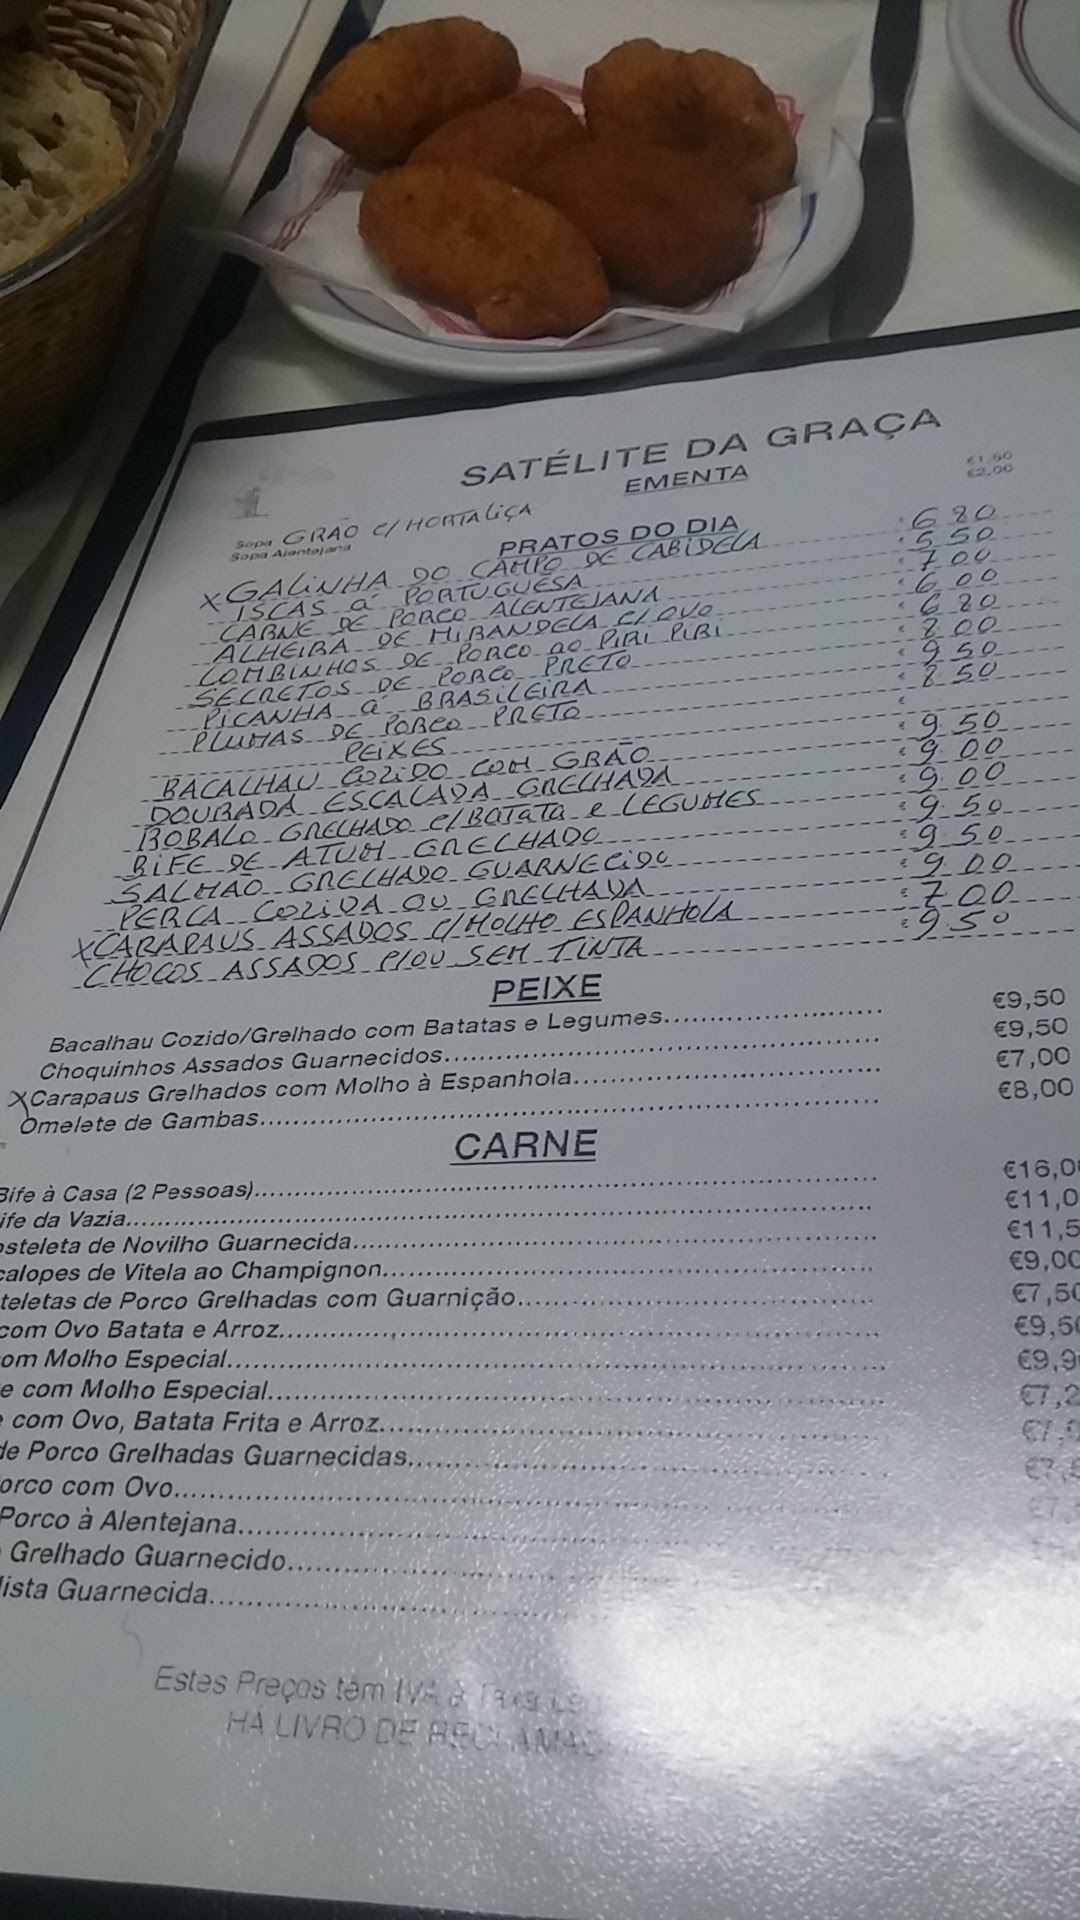 SATÉLITE DA GRAÇA
EMENTA
Sopa GRÃO C/ HORTALIÇA €1,50
Sopa Alentejana €2,00
PRATOS DO DIA
X GALINHA DO CAMPO DE CABIDELA € 6 80
ISCAS À PORTUGUESA € 5 50
CARNE DE PORCO ALENTEJANA € 7 00
ALHEIRA DE MIRANDELA C/OVO € 6 00
LOMBINHOS DE PORCO AO PIRI PIRI € 6 80
SECRETOS DE PORCO PRETO € 8 00
PICANHA À BRASILEIRA € 9 50
PLUMAS DE PORCO PRETO € 8 50
PEIXES €
BACALHAU COZIDO COM GRÃO € 9.50
DOURADA ESCALADA GRELHADA € 9.00
ROBALO GRELHADO C/BATATA e LEGUMES € 9.00
BIFE DE ATUM GRELHADO € 9.50
SALMÃO GRELHADO GUARNECIDO € 9.50
PERCA COZIDA OU GRELHADA € 9.00
X CARAPAUS ASSADOS C/MOLHO ESPANHOLA € 7.00
CHOCOS ASSADOS C/OU SEM TINTA € 9.50
PEIXE
Bacalhau Cozido/Grelhado com Batatas e Legumes €9,50
Choquinhos Assados Guarnecidos €9,50
X Carapaus Grelhados com Molho à Espanhola €7,00
Omelete de Gambas €8,00
CARNE
Bife à Casa (2 Pessoas) €16,0
ife da Vazia €11,0
osteleta de Novilho Guarnecida €11,5
calopes de Vitela ao Champignon €9,00
teletas de Porco Grelhadas com Guarnição €7,50
com Ovo Batata e Arroz €9,50
om Molho Especial €9,9
e com Molho Especial €7,2
com Ovo, Batata Frita e Arroz
de Porco Grelhadas Guarnecidas
orco com Ovo
Porco à Alentejana
Grelhado Guarnecido
lista Guarnecida
Estes Preços têm IVA à Taxa
HÁ LIVRO DE RECLAMAÇ